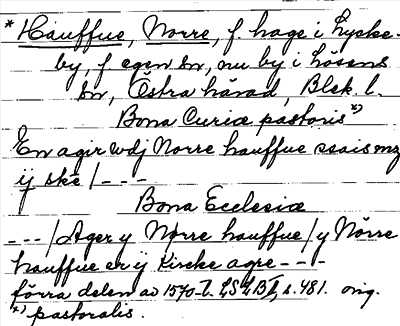 * Hauffue, Norre, f hage i Lycke-
by, f egen sn, nu by i Lösens
sn, Östra härad, Blek. l.
Bona Curiæ pastoris x)
En agir wdj Norre hauffue ssais mz
ij skè / - - -
Bona Ecclesiæ
- - - / Ager y Nørre hauffue / y Nørre
hauffue er ij Kircke agre - - -
förra delen av 1570-t. LSLB s. 481. orig.
x) pastoralis.